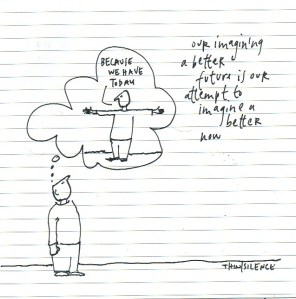 BECAUSE
WE HAVE
TODAY
our imagining
a better
future is our
attempt to
imagine a
better
now
THIN|SILENCE